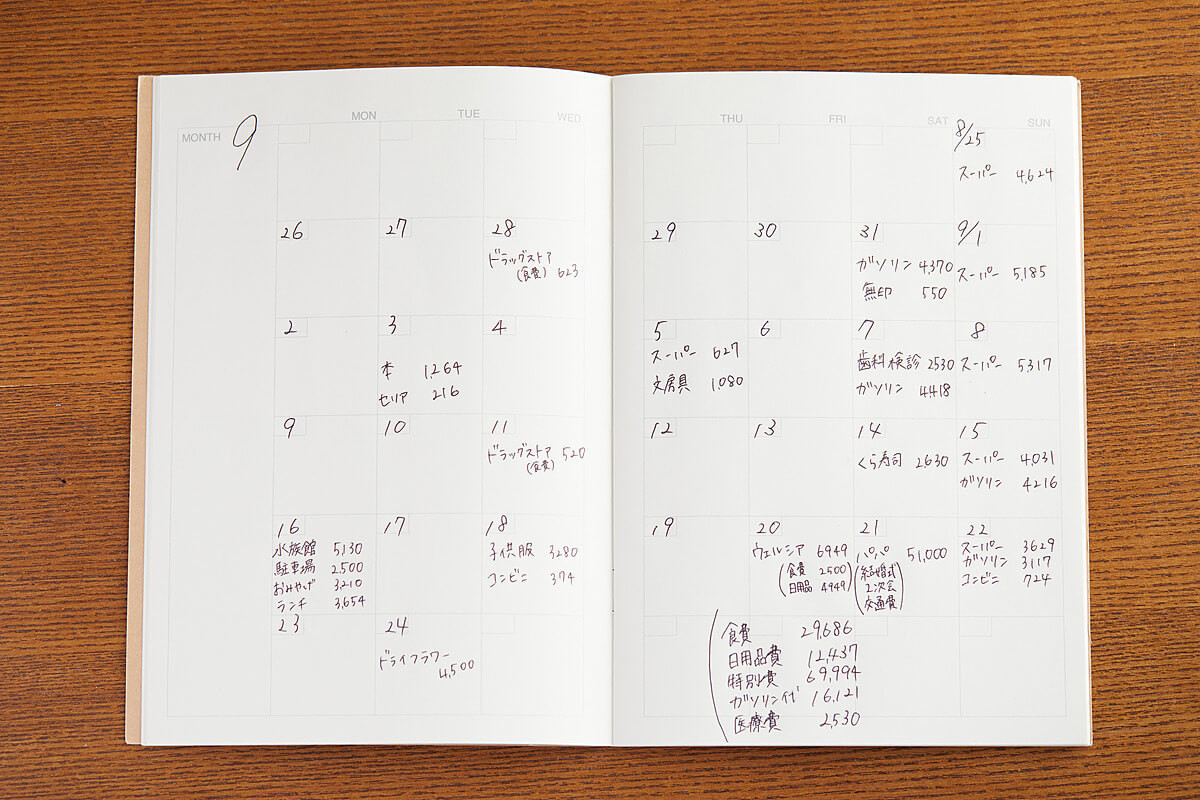 MONTH 9 MON TUE WED THU FRI SAT SUN
8/25
スーパー 4,624
26 27 28 29 30 31 9/1
ドラッグストア
(食費) 623
ガソリン 4,370
無印 550
スーパー 5,185
2 3 4 5 6 7 8
本 1,264
セリア 216
スーパー 627
文房具 1,080
歯科検診 2530
ガソリン 4418
スーパー 5317
9 10 11 12 13 14 15
ドラッグストア 520
(食費)
くら寿司 2630
スーパー 4,031
ガソリン 4216
16 17 18 19 20 21 22
水族館 5130
駐車場 2500
おみやげ 3,210
ランチ 3,654
子供服 3280
コンビニ 374
ウェルシア 6949
(食費 2500)
日用品 4949
パパ 51,000
(結婚式
2次会
交通費)
スーパー 3629
ガソリン 3117
コンビニ 724
23 24
ドライフラワー
4,500
食費 29,686
日用品費 12,437
特別費 69,994
ガソリン代 16,121
医療費 2,530